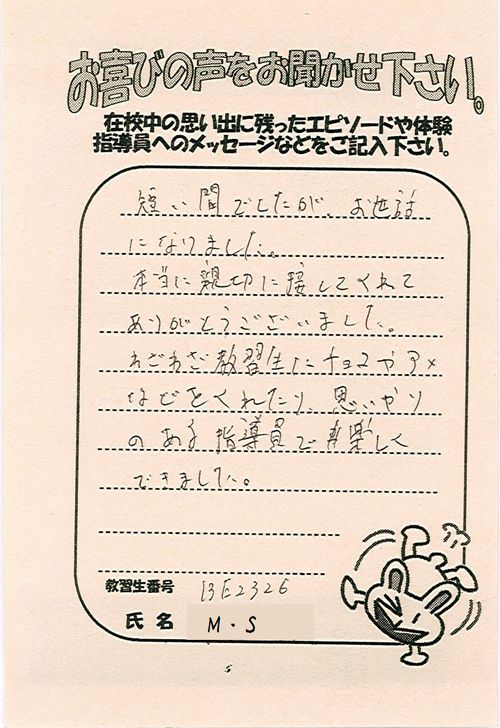 お喜びの声をお聞かせ下さい。
在校中の思い出に残ったエピソードや体験
指導員へのメッセージなどをご記入下さい。
短い間でしたが、お世話
になりました。
本当に親切に接してくれて
ありがとうございました。
わざわざ教習生にチョコやアメ
などをくれたり、思いやり
のある指導員で楽しく
できました。
教習生番号 13E2326
氏名 M.S